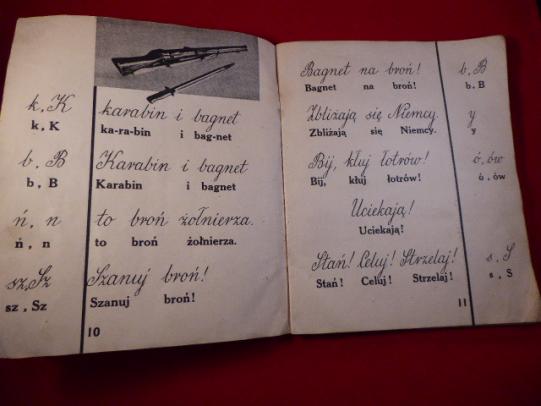 k, K
k, K
karabin i bagnet
ka-ra-bin i bag-net
b, B
b, B
Karabin i bagnet
Karabin i bagnet
ń, n
ń, n
to broń żołnierza.
to broń żołnierza.
sz, Sz
sz, Sz
Szanuj broń!
Szanuj broń!
10
Bagnet na broń!
Bagnet na broń!
b, B
b, B
Zbliżają się Niemcy.
Zbliżają się Niemcy.
y
y
Bij, kłuj łotrów!
Bij, kłuj łotrów!
ó, ów
ó, ów
Uciekają!
Uciekają!
Stań! Celuj! Strzelaj!
Stań! Celuj! Strzelaj!
s, S
s, S
11